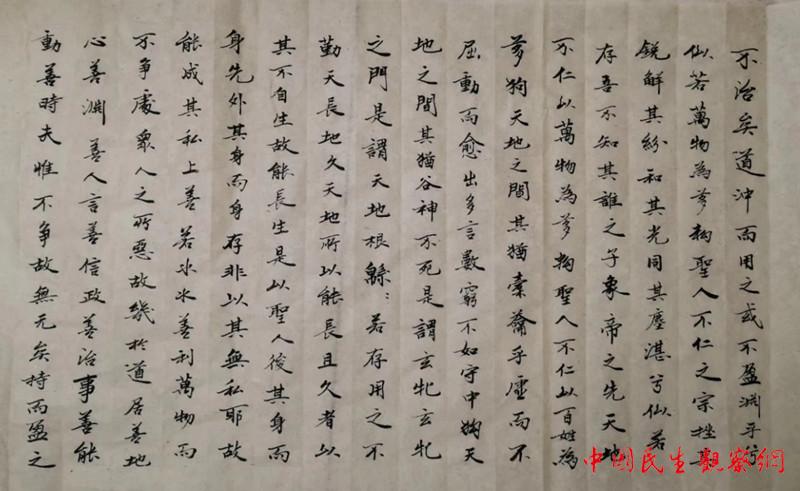 不治矣道沖而用之或不盈淵乎兮
似若萬物為芻狗聖人不仁之宗挫其
銳解其紛和其光同其塵湛兮似若
存吾不知其誰之子象帝之先天地
不仁以萬物為芻狗聖人不仁以百姓為
芻狗天地之間其猶橐籥乎虛而不
屈動而愈出多言數窮不如守中狗天
地之間其猶谷神不死是謂玄牝玄牝
之門是謂天地根緜〻若存用之不
勤天長地久天地所以能長且久者以
其不自生故能長生是以聖人後其身而
身先外其身而身存非以其無私耶故
能成其私上善若水水善利萬物而
不爭處眾人之所惡故幾於道居善地
心善淵善人言善信政善治事善能
動善時夫惟不爭故無尤矣持而盈之
中國民生觀察網